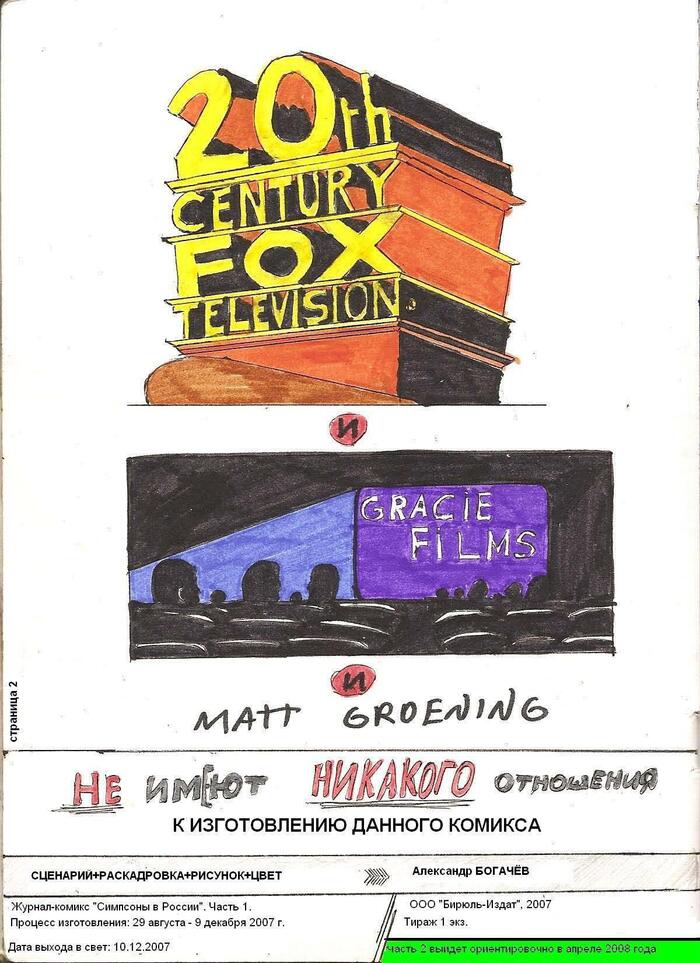 20th
CENTURY
FOX
TELEVISION.
И
GRACIE
FILMS
И
MATT GROENING
страница 2
НЕ ИМЕЮТ НИКАКОГО ОТНОШЕНИЯ
К ИЗГОТОВЛЕНИЮ ДАННОГО КОМИКСА
СЦЕНАРИЙ+РАСКАДРОВКА+РИСУНОК+ЦВЕТ
Александр БОГАЧЁВ
Журнал-комикс "Симпсоны в России". Часть 1.
Процесс изготовления: 29 августа - 9 декабря 2007 г.
Дата выхода в свет: 10.12.2007
ООО "Бирюль-Издат", 2007
Тираж 1 экз.
Часть 2 выйдет ориентировочно в апреле 2008 года